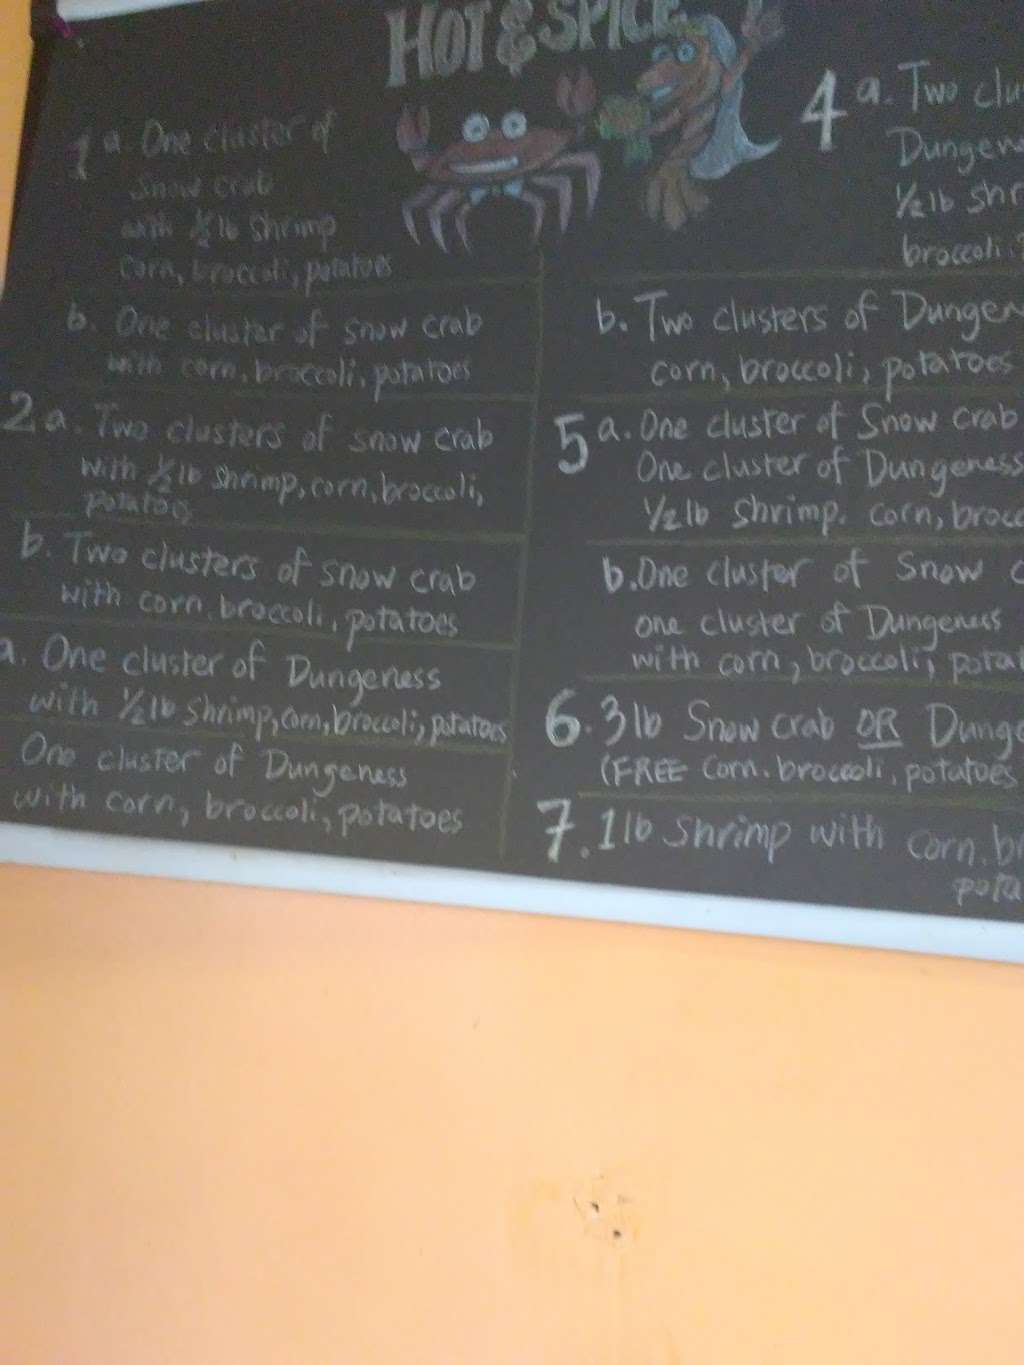 HOT & SPICE
1 a. One cluster of
Snow crab
with 1/2 lb Shrimp
corn, broccoli, potatoes
b. One cluster of snow crab
with corn, broccoli, potatoes
2 a. Two clusters of snow crab
with 1/2 lb Shrimp, corn, broccoli,
potatoes
b. Two clusters of snow crab
with corn, broccoli, potatoes
a. One cluster of Dungeness
with 1/2 lb Shrimp, corn, broccoli, potatoes
One cluster of Dungeness
with corn, broccoli, potatoes
4 a. Two clu
Dungen
1/2 lb Shr
broccoli,
b. Two clusters of Dungen
corn, broccoli, potatoes
5 a. One cluster of Snow crab
One cluster of Dungeness
1/2 lb Shrimp. corn, brocc
b. One cluster of Snow c
one cluster of Dungeness
with corn, broccoli, potat
6. 3 lb Snow crab OR Dunge
(FREE corn. broccoli, potatoes
7. 1 lb Shrimp with corn. br
pota